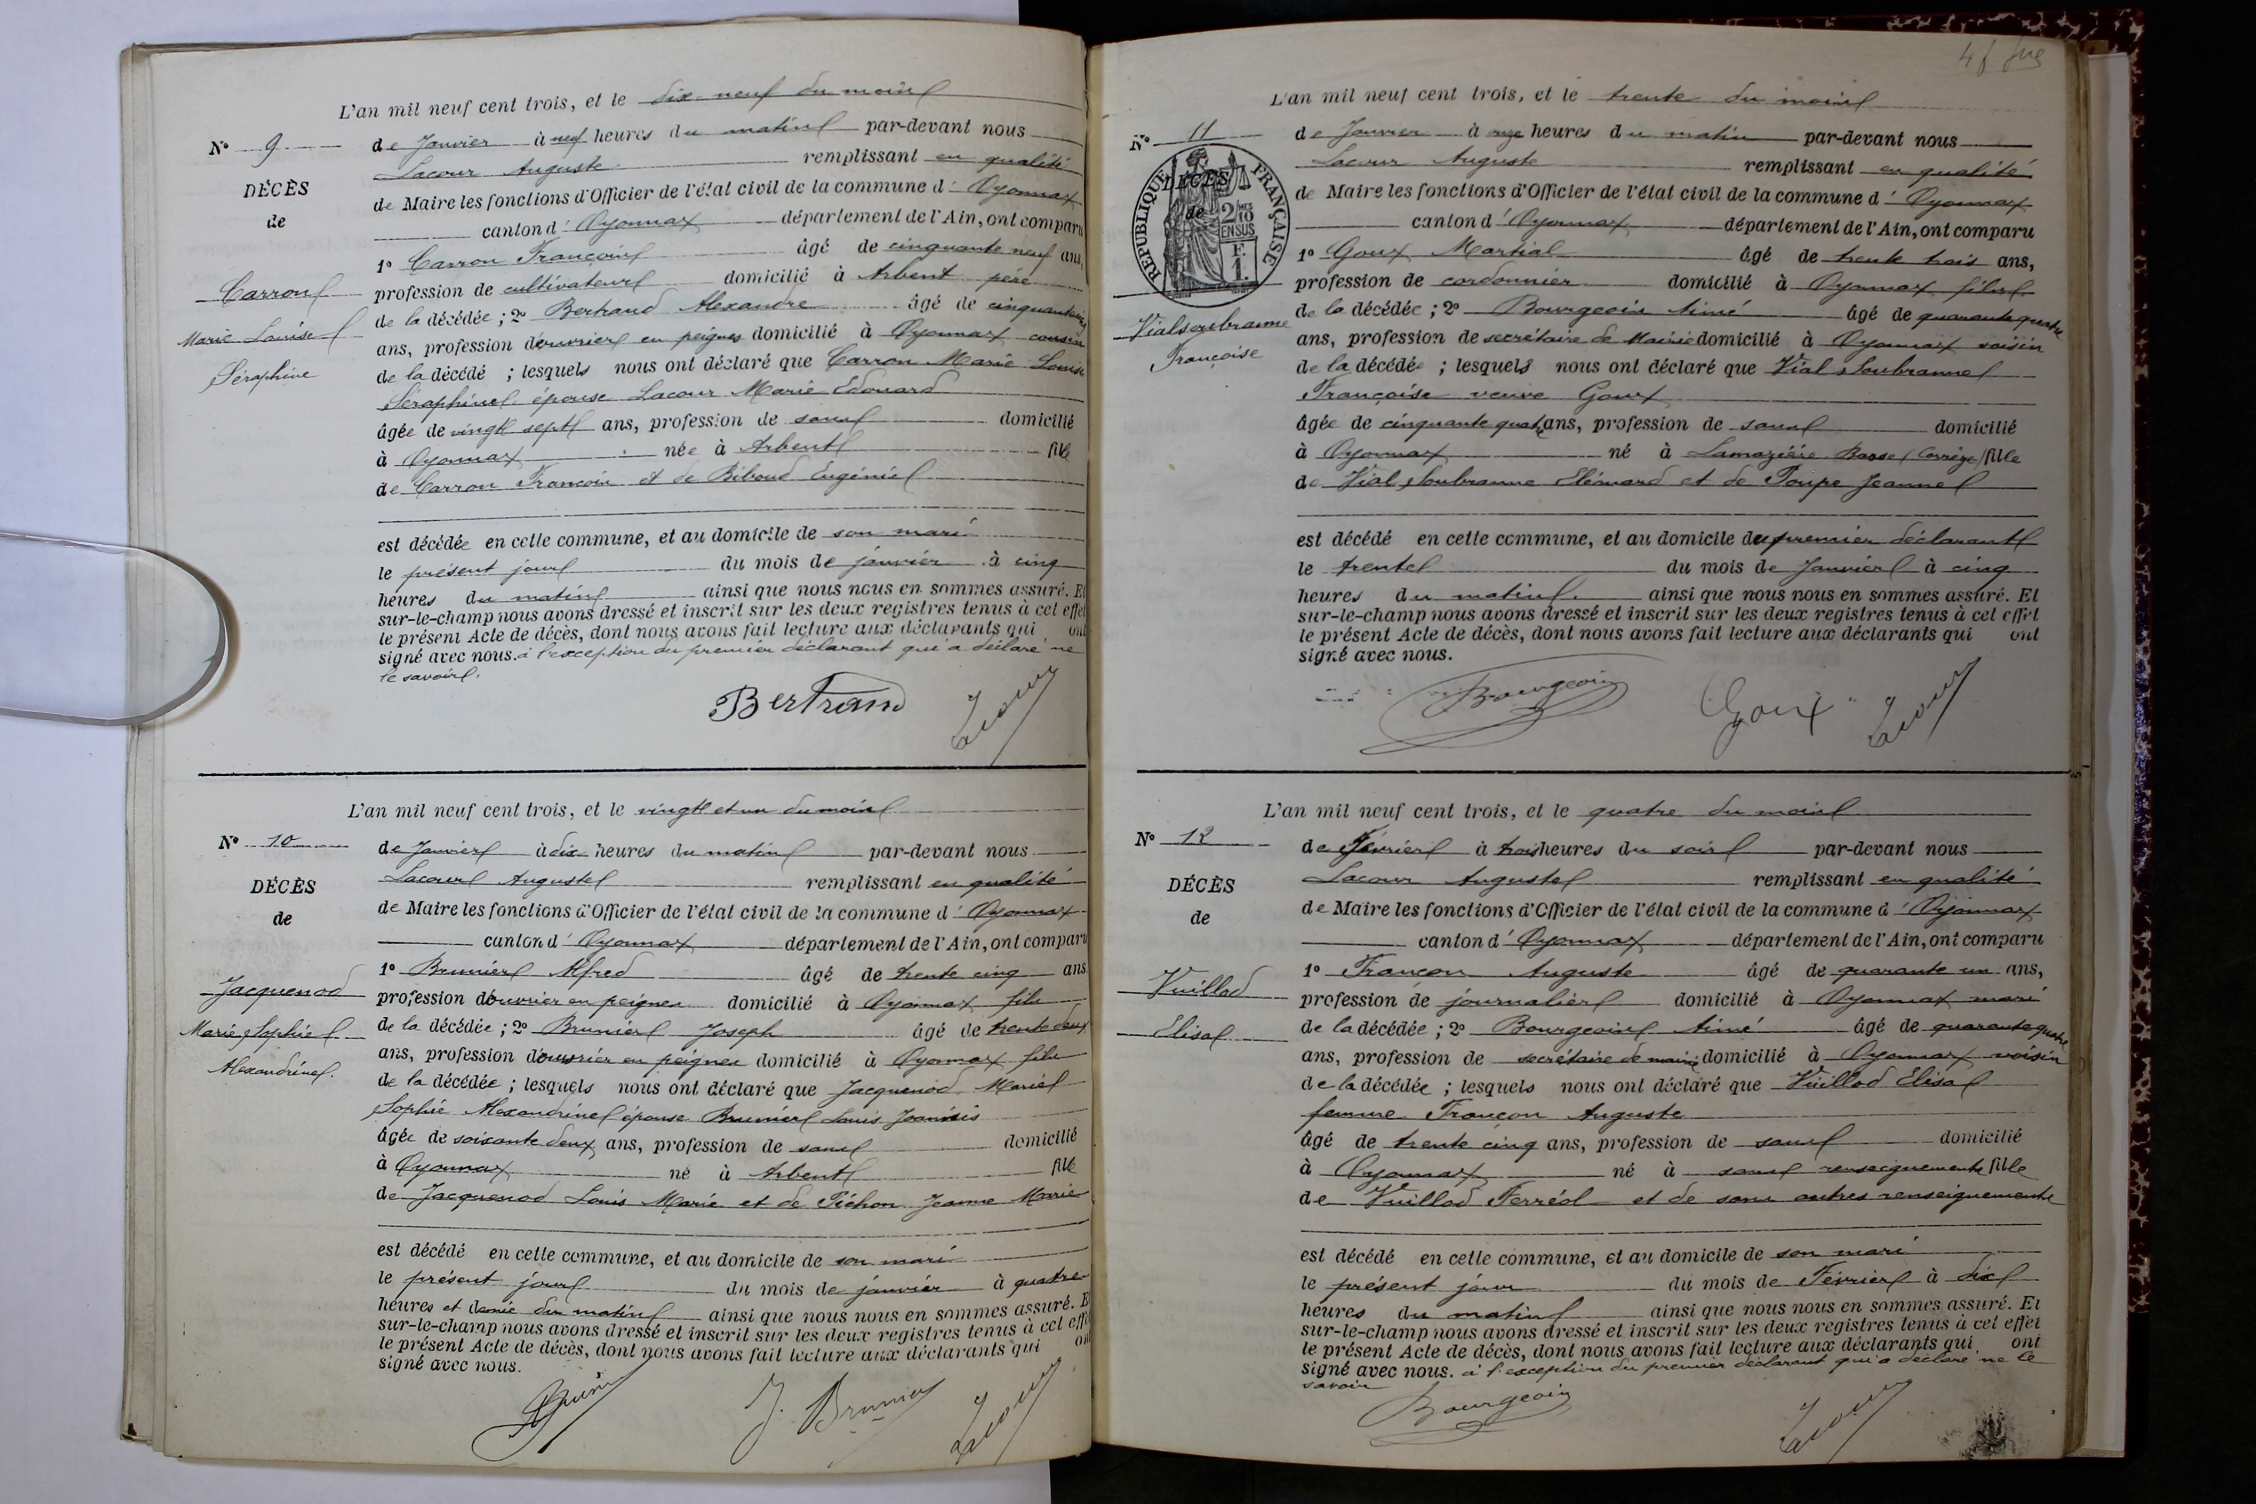 L'an mil neuf cent trois, et le dix-neuf du mois
N° 9
de Janvier à neuf heures du matin par-devant nous
Lacour Auguste remplissant en qualité
DÉCÈS
de Maire les fonctions d'Officier de l'état civil de la commune d' Oyonnax
de
canton d' Oyonnax département de l'Ain, ont comparu
1° Carron François âgé de cinquante neuf ans,
Carron
profession de cultivateur domicilié à Arbent père
de la décédée ; 2° Bertrand Alexandre âgé de cinquante
Marie Louise
ans, profession d'ouvrier en peignes domicilié à Oyonnax cousin
Séraphine
de la décédé ; lesquels nous ont déclaré que Carron Marie Louise
Séraphine épouse Lacour Marie Edouard
âgée de vingt sept ans, profession de sans domicilié
à Oyonnax née à Arbent fille
de Carron François et de Biboud Eugénie
est décédée en cette commune, et au domicile de son mari
le présent jour du mois de janvier à cinq
heures du matin ainsi que nous nous en sommes assuré. Et
sur-le-champ nous avons dressé et inscrit sur les deux registres tenus à cet effet
le présent Acte de décès, dont nous avons fait lecture aux déclarants qui ont
signé avec nous. à l'exception du premier déclarant qui a déclaré ne
le savoir.
Bertrand Lacour
L'an mil neuf cent trois, et le vingt et un du mois
N° 10
de Janvier à dix heures du matin par-devant nous
Lacour Auguste remplissant en qualité
DÉCÈS
de Maire les fonctions d'Officier de l'état civil de la commune d' Oyonnax
de
canton d' Oyonnax département de l'Ain, ont comparu
1° Brunier Alfred âgé de trente cinq ans
Jacquenod
profession d'ouvrier en peignes domicilié à Oyonnax fils
Marie Sophie
de la décédée ; 2° Brunier Joseph âgé de trente deux
ans, profession d'ouvrier en peignes domicilié à Oyonnax fils
Alexandrine.
de la décédée ; lesquels nous ont déclaré que Jacquenod Marie
Sophie Alexandrine épouse Brunier Louis Joannis
âgée de soixante deux ans, profession de sans domicilié
à Oyonnax né à Arbent fille
de Jacquenod Louis Marie et de Pichon Jeanne Marie
est décédé en cette commune, et au domicile de son mari
le présent jour du mois de janvier à quatre
heures et demie du matin ainsi que nous nous en sommes assuré. E
sur-le-champ nous avons dressé et inscrit sur les deux registres tenus à cet effe
le présent Acte de décès, dont nous avons fait lecture aux déclarants qui on
signé avec nous.
J. Brunier Lacour
L'an mil neuf cent trois, et le trente du mois
N° 11
de Janvier à onze heures du matin par-devant nous
Lacour Auguste remplissant en qualité
RÉPUBLIQUE FRANÇAISE
DÉCÈS
de
2/10
EN SUS
F.
1.
de Maire les fonctions d'Officier de l'état civil de la commune d' Oyonnax
canton d' Oyonnax département de l'Ain, ont comparu
1° Goux Martial âgé de trente trois ans,
profession de cordonnier domicilié à Oyonnax fils
Vialsoubranne
de la décédée ; 2° Bourgeois Aimé âgé de quarante quatre
Françoise
ans, profession de secrétaire de Mairie domicilié à Oyonnax voisin
de la décédée ; lesquels nous ont déclaré que Vial Soubranne
Françoise veuve Goux
âgée de cinquante quatre ans, profession de sans domicilié
à Oyonnax né à Lamazière Basse (Corrèze) fille
de Vial Soubranne Léonard et de Poupe Jeanne
est décédé en cette commune, et au domicile du premier déclarant
le trente du mois de Janvier à cinq
heures du matin. ainsi que nous nous en sommes assuré. Et
sur-le-champ nous avons dressé et inscrit sur les deux registres tenus à cet effet
le présent Acte de décès, dont nous avons fait lecture aux déclarants qui ont
signé avec nous.
Bourgeois Goux Lacour
L'an mil neuf cent trois, et le quatre du mois
N° 12
de Février à trois heures du soir par-devant nous
Lacour Auguste remplissant en qualité
DÉCÈS
de Maire les fonctions d'Officier de l'état civil de la commune d' Oyonnax
de
canton d' Oyonnax département de l'Ain, ont comparu
1° Françon Auguste âgé de quarante un ans,
Vuillod
profession de journalier domicilié à Oyonnax mari
Elisa
de la décédée ; 2° Bourgeois Aimé âgé de quarante quatre
ans, profession de secrétaire de mairie domicilié à Oyonnax voisin
de la décédée ; lesquels nous ont déclaré que Vuillod Elisa
femme Françon Auguste
âgé de trente cinq ans, profession de sans domicilié
à Oyonnax né à sans renseignements fille
de Vuillod Ferréol et de sans autres renseignements
est décédé en cette commune, et au domicile de son mari
le présent jour du mois de Février à dix
heures du matin ainsi que nous nous en sommes assuré. Et
sur-le-champ nous avons dressé et inscrit sur les deux registres tenus à cet effet
le présent Acte de décès, dont nous avons fait lecture aux déclarants qui ont
signé avec nous. à l'exception du premier déclarant qui a déclaré ne le
savoir
Bourgeois Lacour